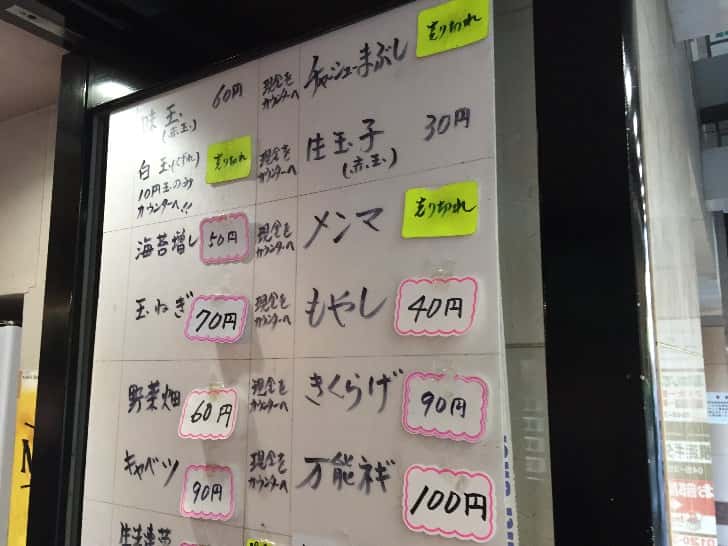 味玉
(赤玉)
60円
現金を
カウンターへ
チャーシューまぶし
売り切れ
白玉(くずれ)
10円玉のみ
カウンターへ!!
売り切れ
現金を
カウンターへ
生玉子
(赤玉)
30円
海苔増し
50円
現金を
カウンターへ
メンマ
売り切れ
玉ねぎ
70円
現金を
カウンターへ
もやし
40円
野菜畑
60円
現金を
カウンターへ
きくらげ
90円
キャベツ
90円
現金を
カウンターへ
万能ネギ
100円